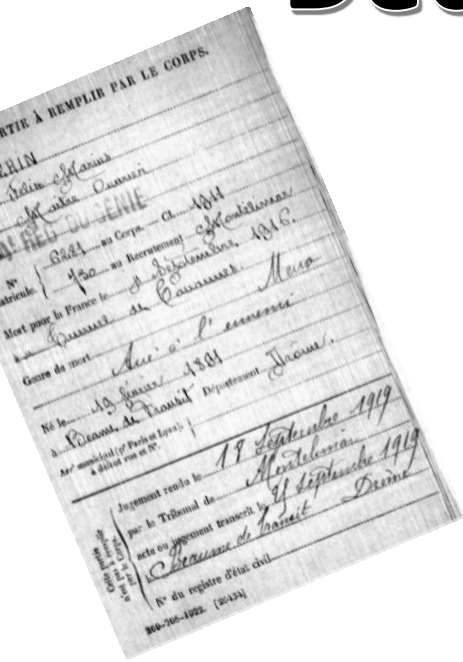 RTIE À REMPLIR PAR LE CORPS.
Felix Marius
Maitre Ouvrier
REG DU GENIE
N° 8221 au Corps. Cl. 1911
atricule. 730 au Recrutement Montélimar
Mort pour la France le Septembre 1916.
Tunnel de Tavannes. Meuse
Genre de mort Tué à l'ennemi
Né le 19 février 1891
à Beaume de Transit Département Drôme.
Arr municipal (pr Paris et Lyon),
à défaut rue et N°.
Cette partie
n'est pas à remplir
par le Corps.
Jugement rendu le 18 Septembre 1919
par le Tribunal de Montélimar
acte ou jugement transcrit le septembre 1919
à Beaume de Transit Drôme
N° du registre d'état civil
[26434]